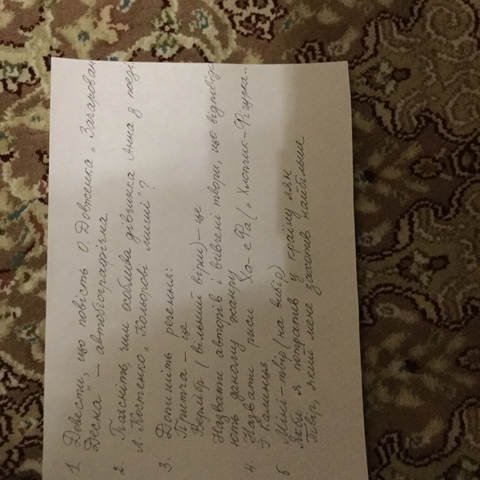 1 Довести, що повість О. Довженка „Зачарована
Десна" – автобіографічна
2 Поясніть, чим особлива дівчинка Анна з поезії
Л. Костенко „Кольорові миші"?
3. Допишіть речення:
Притча – це
Верлібр (вільний вірш) – це
Назвати авторів і вивчені твори, що відповіда
ють даному жанру
4 Назвати риси Ха-еРа („Хлопчик-Фігурка..
Г. Малик
5 Міні-твір (на вибір)
Якби я потрапив у країну лял
Твір, який мене захопив найбільше